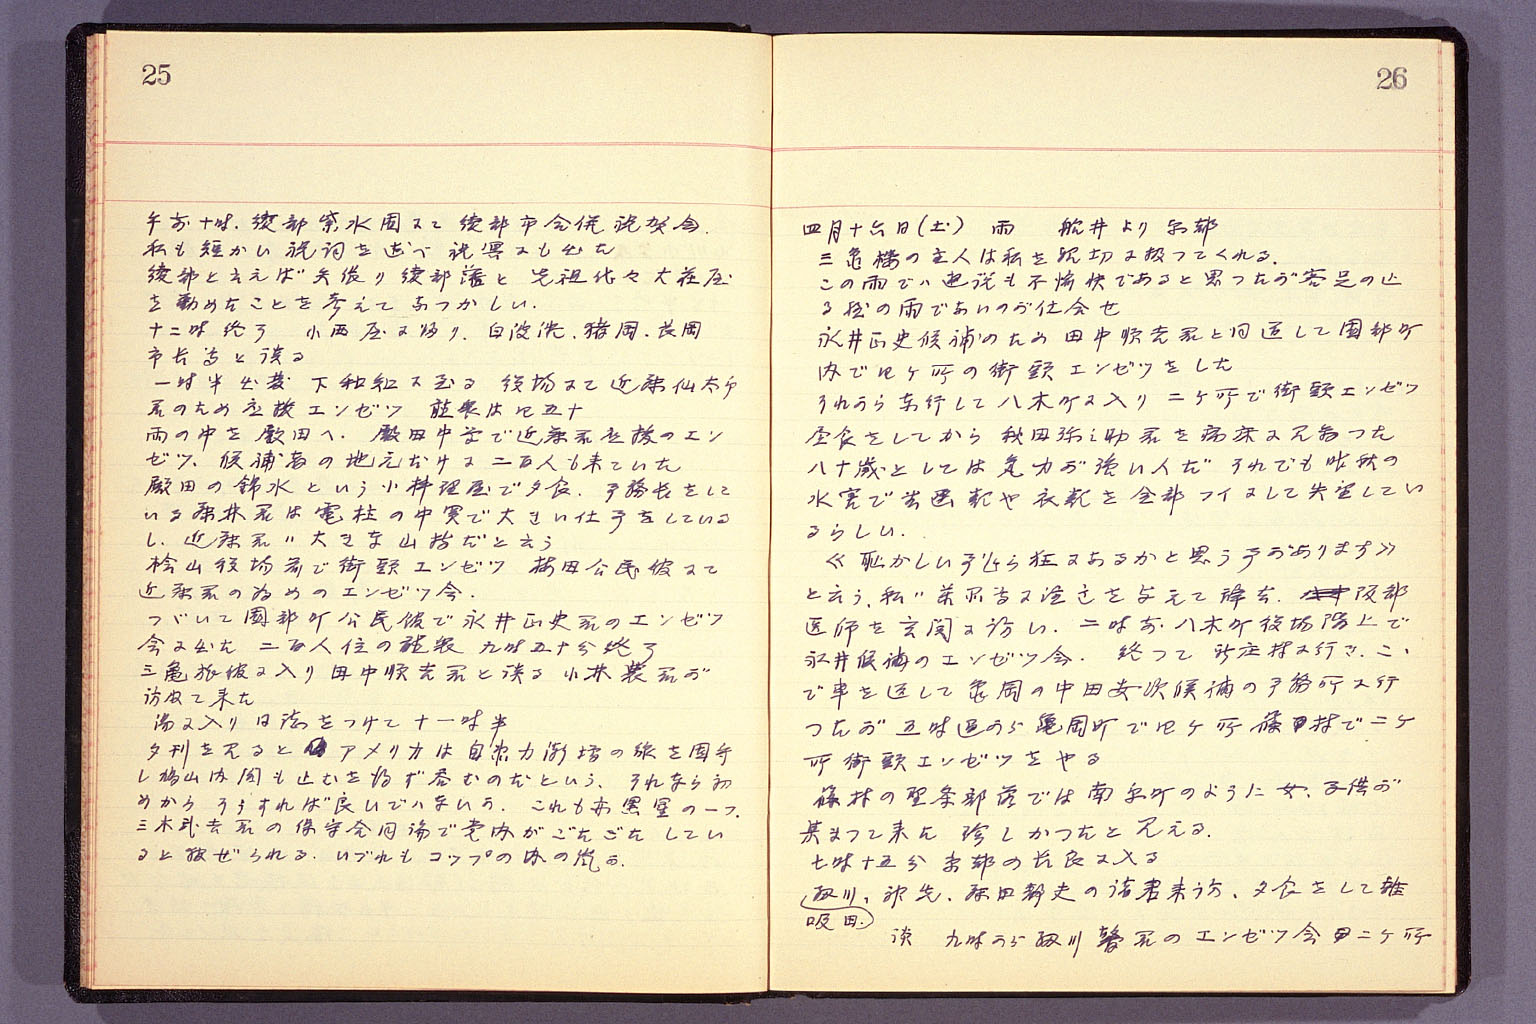 25
午前十時、綾部紫水園にて綾部市合併祝賀会.
私も短かい祝詞を述べ祝宴にも出た
綾部と云えば矢張り綾部藩と先祖代々大荘屋
を勤めたことを考えてなつかしい.
十二時終了 小西屋に帰り、白波瀬、猪岡、長岡
市長等と談る
一時半出発 下和知に至る 役場にて近藤仙太郎
君のため応援エンゼツ 聴衆は四五十
雨の中を殿田へ. 殿田中学で近藤君応援のエン
ゼツ、候補者の地元だけに二百人も来ていた
殿田の錦水という小料理屋で夕食. 事務長をして
いる藤林君は電柱の中実で大きい仕事をしている
し、近藤君ハ大きな山持だと云う
桧山役場前で街頭エンゼツ 梅田公民館にて
近藤君の為めのエンゼツ会.
つゞいて園部町公民館で永井正史君のエンゼツ
会に出た 二百人位の聴衆 九時五十分終了
三亀旅館に入り田中順吉君と談る 小林 君が
訪ねて来た
湯に入り日誌をつけて十一時半
夕刊を見ると アメリカは自衛力漸増の線を固守
し鳩山内閣も止むを得ず呑むのだという、それなら初
めから そうすれば良いでハないか. これも亦黒星の一つ.
三木武吉君の保守合同論で党内がごたごたしてい
ると報ぜられる. いづれもコップの中の嵐か.
26
四月十六日(土) 雨 船井より京都
三亀楼の主人は私を親切に扱つてくれる.
この雨でハ遊説も不愉快であると思つたが客足の止
る程の雨でないのが仕合せ
永井正史候補のため田中順吉君と同道して園部町
内で四ヶ所の街頭エンゼツをした
それから東行して八木町に入り二ヶ所で街頭エンゼツ
昼食をしてから秋田弥之助君を病床に見舞つた
八十歳としては気力が強い人だ それでも昨秋の
水害で書画類や衣類を全部フイにして失望してい
るらしい.
≪恥かしい事乍ら狂にあるかと思う事があります≫
と云う、私ハ 等に注意を与えて辞去. 阪部
医師を玄関に訪い. 二時前八木町役場階上で
永井候補のエンゼツ会. 終つて 庄村に行き、こゝ
で車を返して亀岡の中田安次候補の事務所に行
つたが五時過から亀岡町で四ヶ所 篠村で二ヶ
所街頭エンゼツをやる
篠村の 部落では南京町のように女、子供が
集まつて来た 珍しかつたと見える.
七時十五分京都の長良に入る
細川、 、藤田静夫の諸君来訪、夕食をして雑
吸田.
談 九時から細川馨君のエンゼツ会 二ヶ所